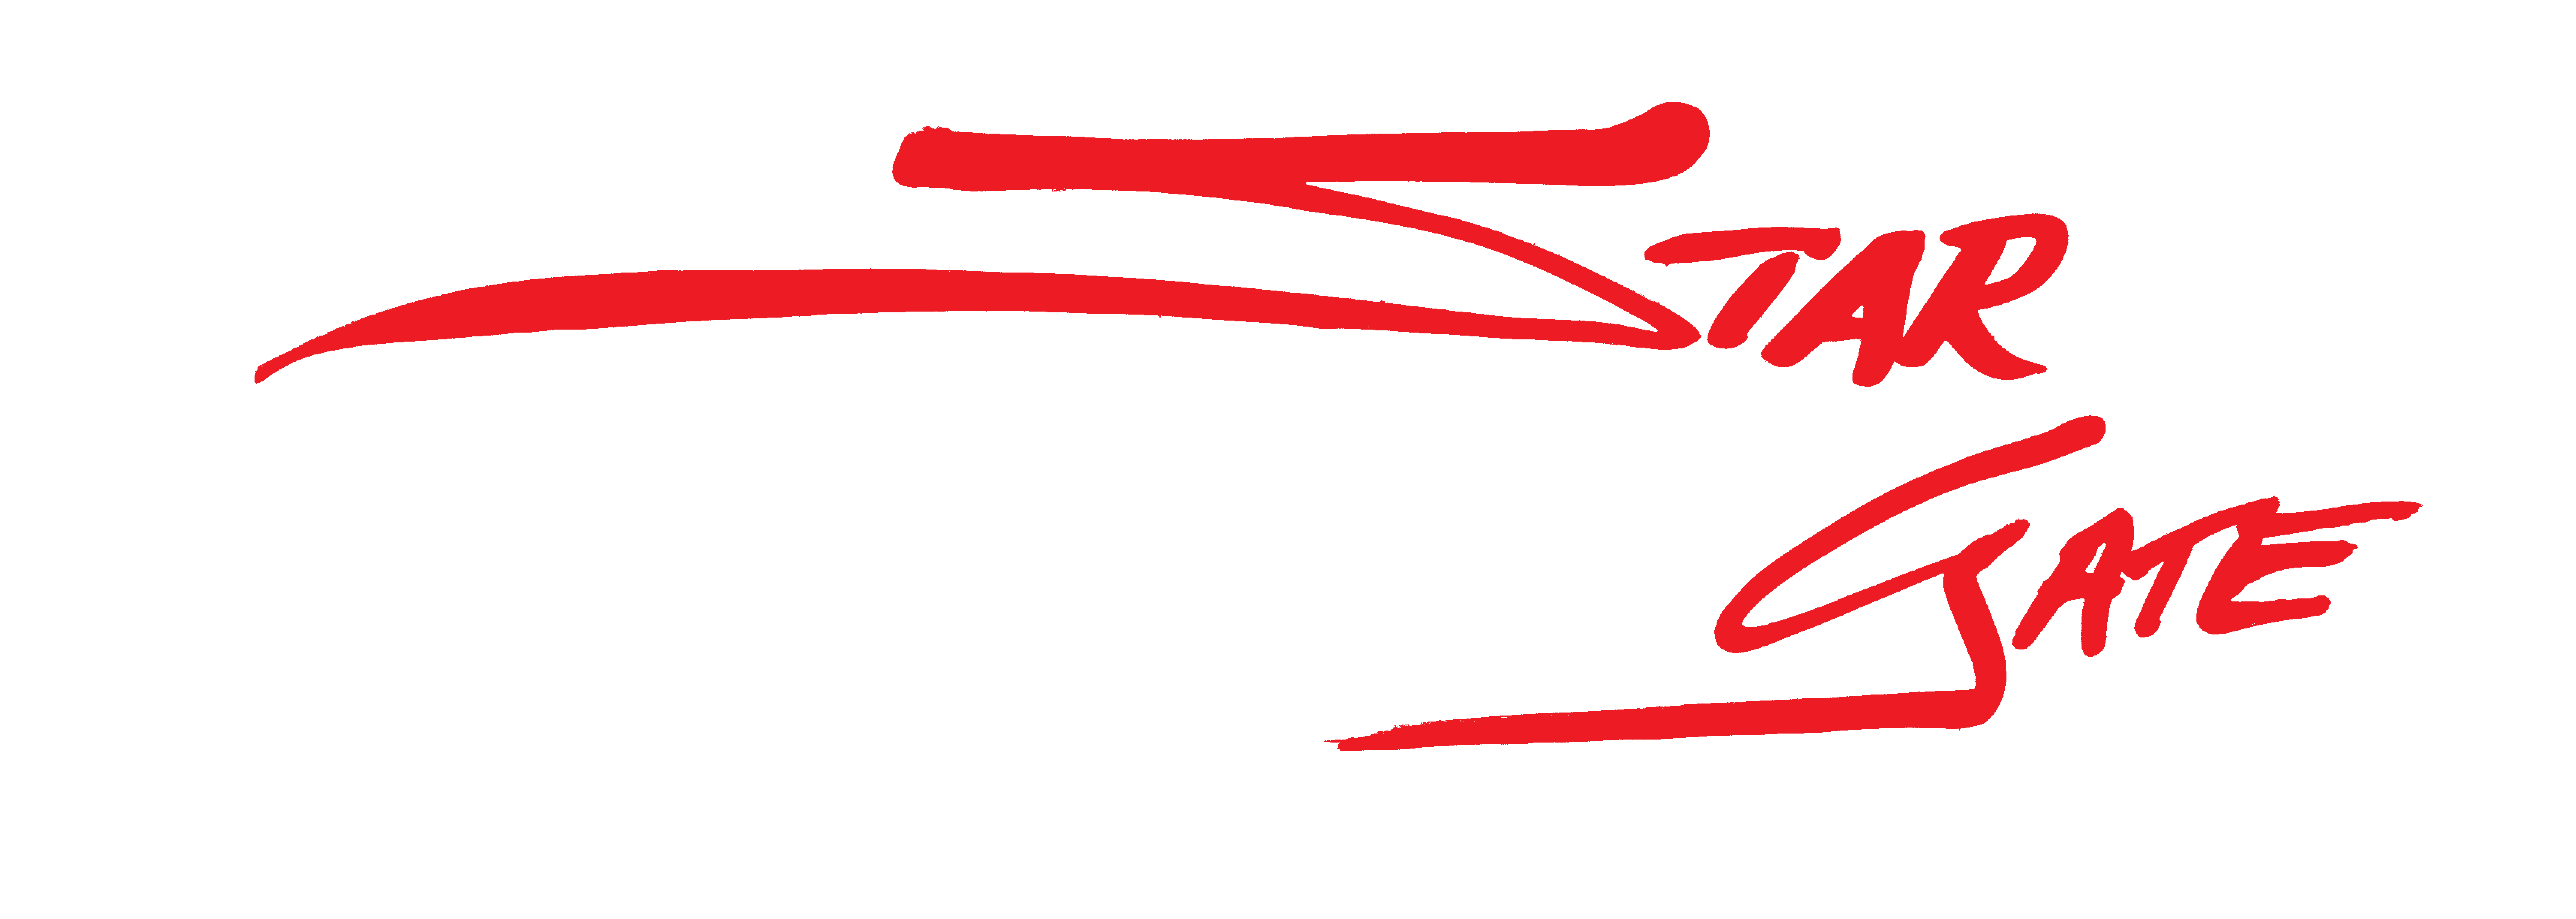 STAR
GATE